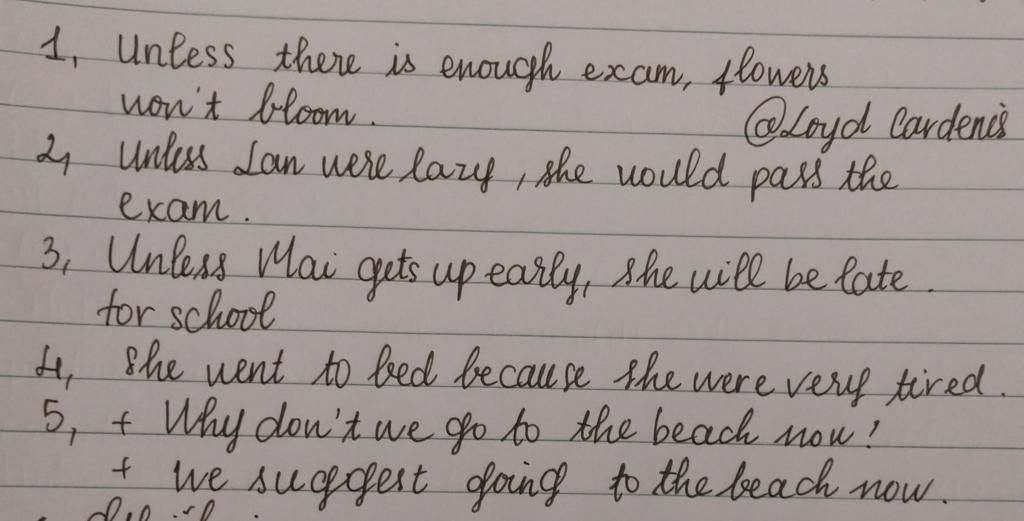 1, Unless there is enough exam, flowers
won't bloom.
@Loyd Cardenis
2, Unless Lan were lazy, she would pass the
exam.
3, Unless Mai gets up early, she will be late.
for school
4, She went to bed because she were very tired.
5, + Why don't we go to the beach now!
+ We suggest going to the beach now.